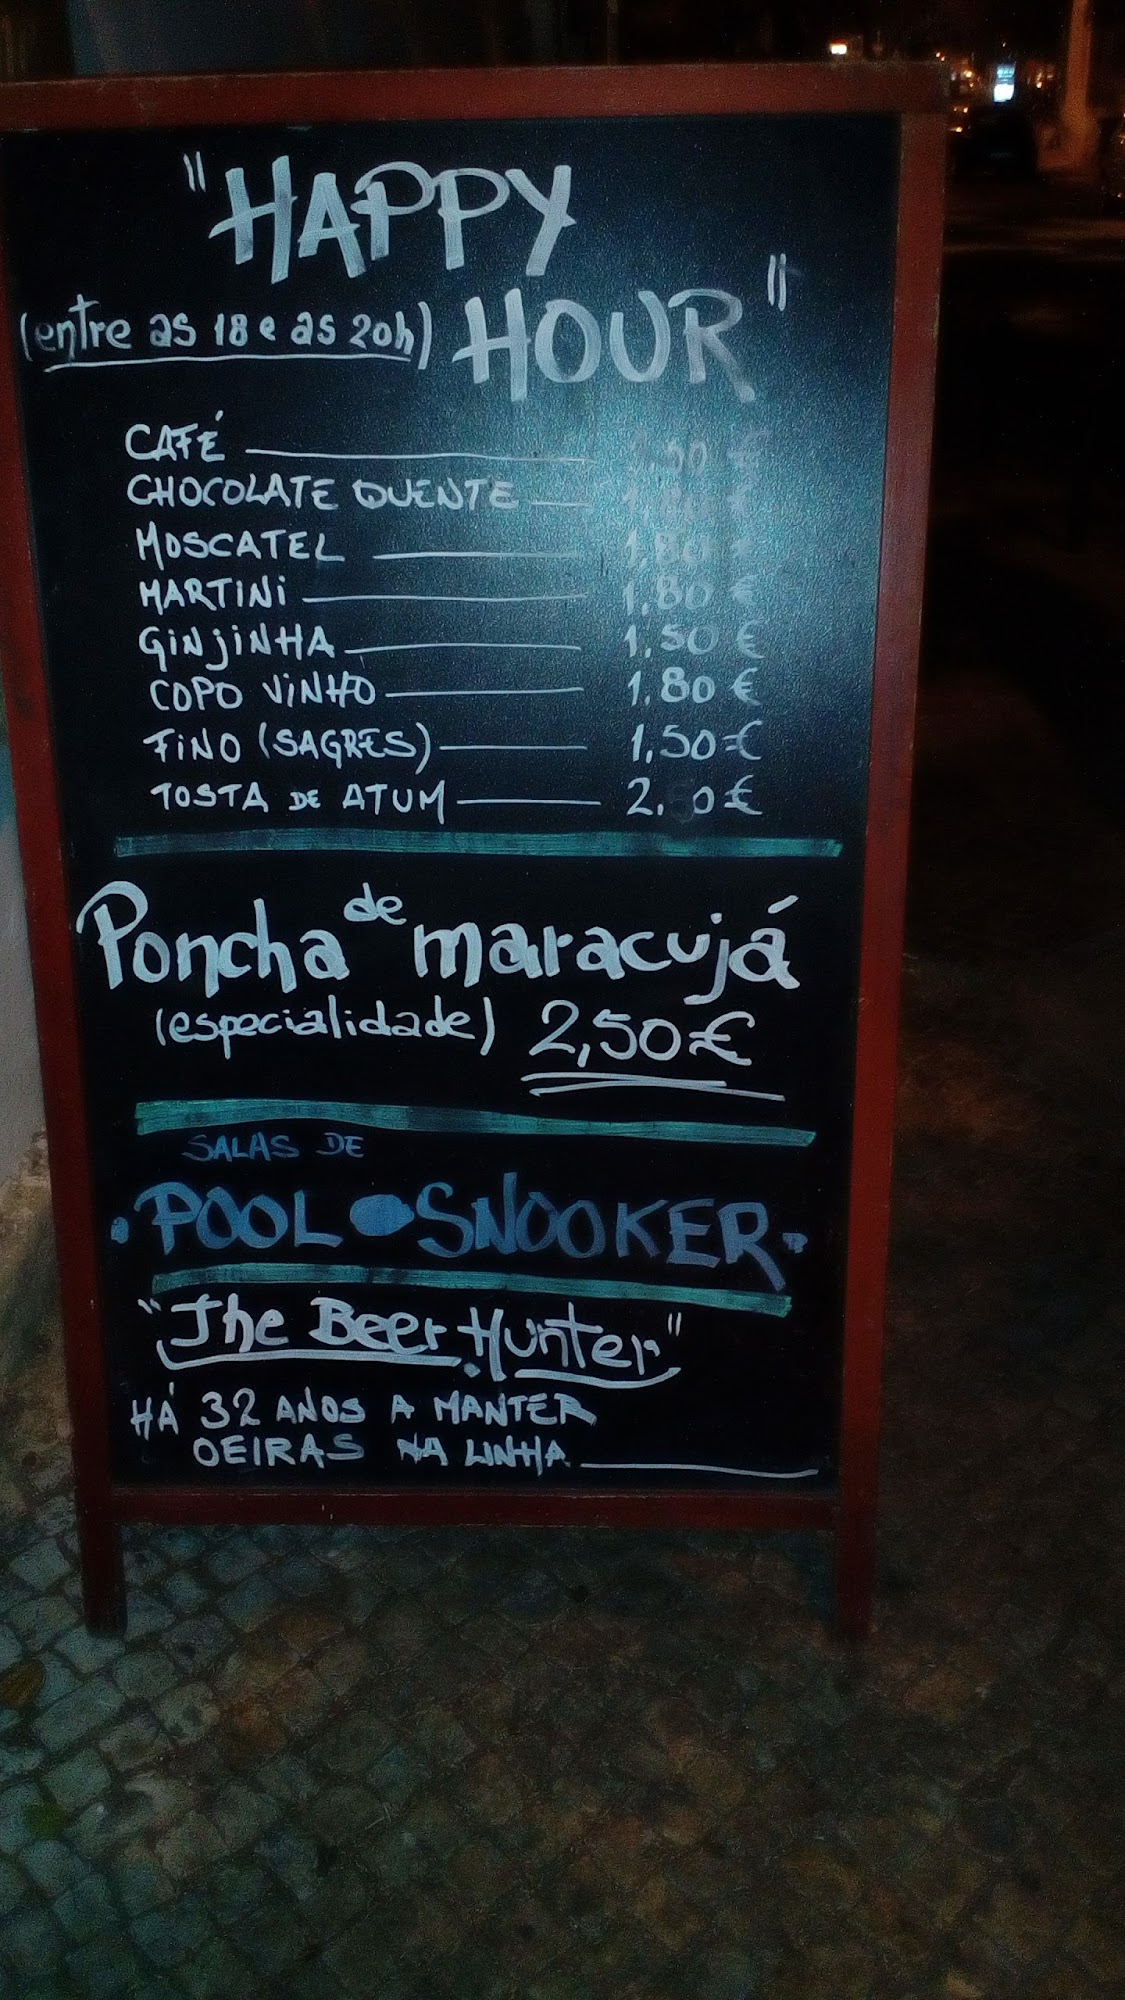 "HAPPY
(entre as 18 e as 20h) HOUR"
CAFÉ €
CHOCOLATE QUENTE 1,80 €
MOSCATEL 1,80 €
MARTINI 1,80 €
GINJINHA 1,50 €
COPO VINHO 1,80 €
FINO (SAGRES) 1,50 €
TOSTA DE ATUM
Poncha de maracujá
(especialidade) 2,50€
SALAS DE
• POOL • SNOOKER •
"The Beer Hunter"
HÁ 32 ANOS A MANTER
OEIRAS NA LINHA